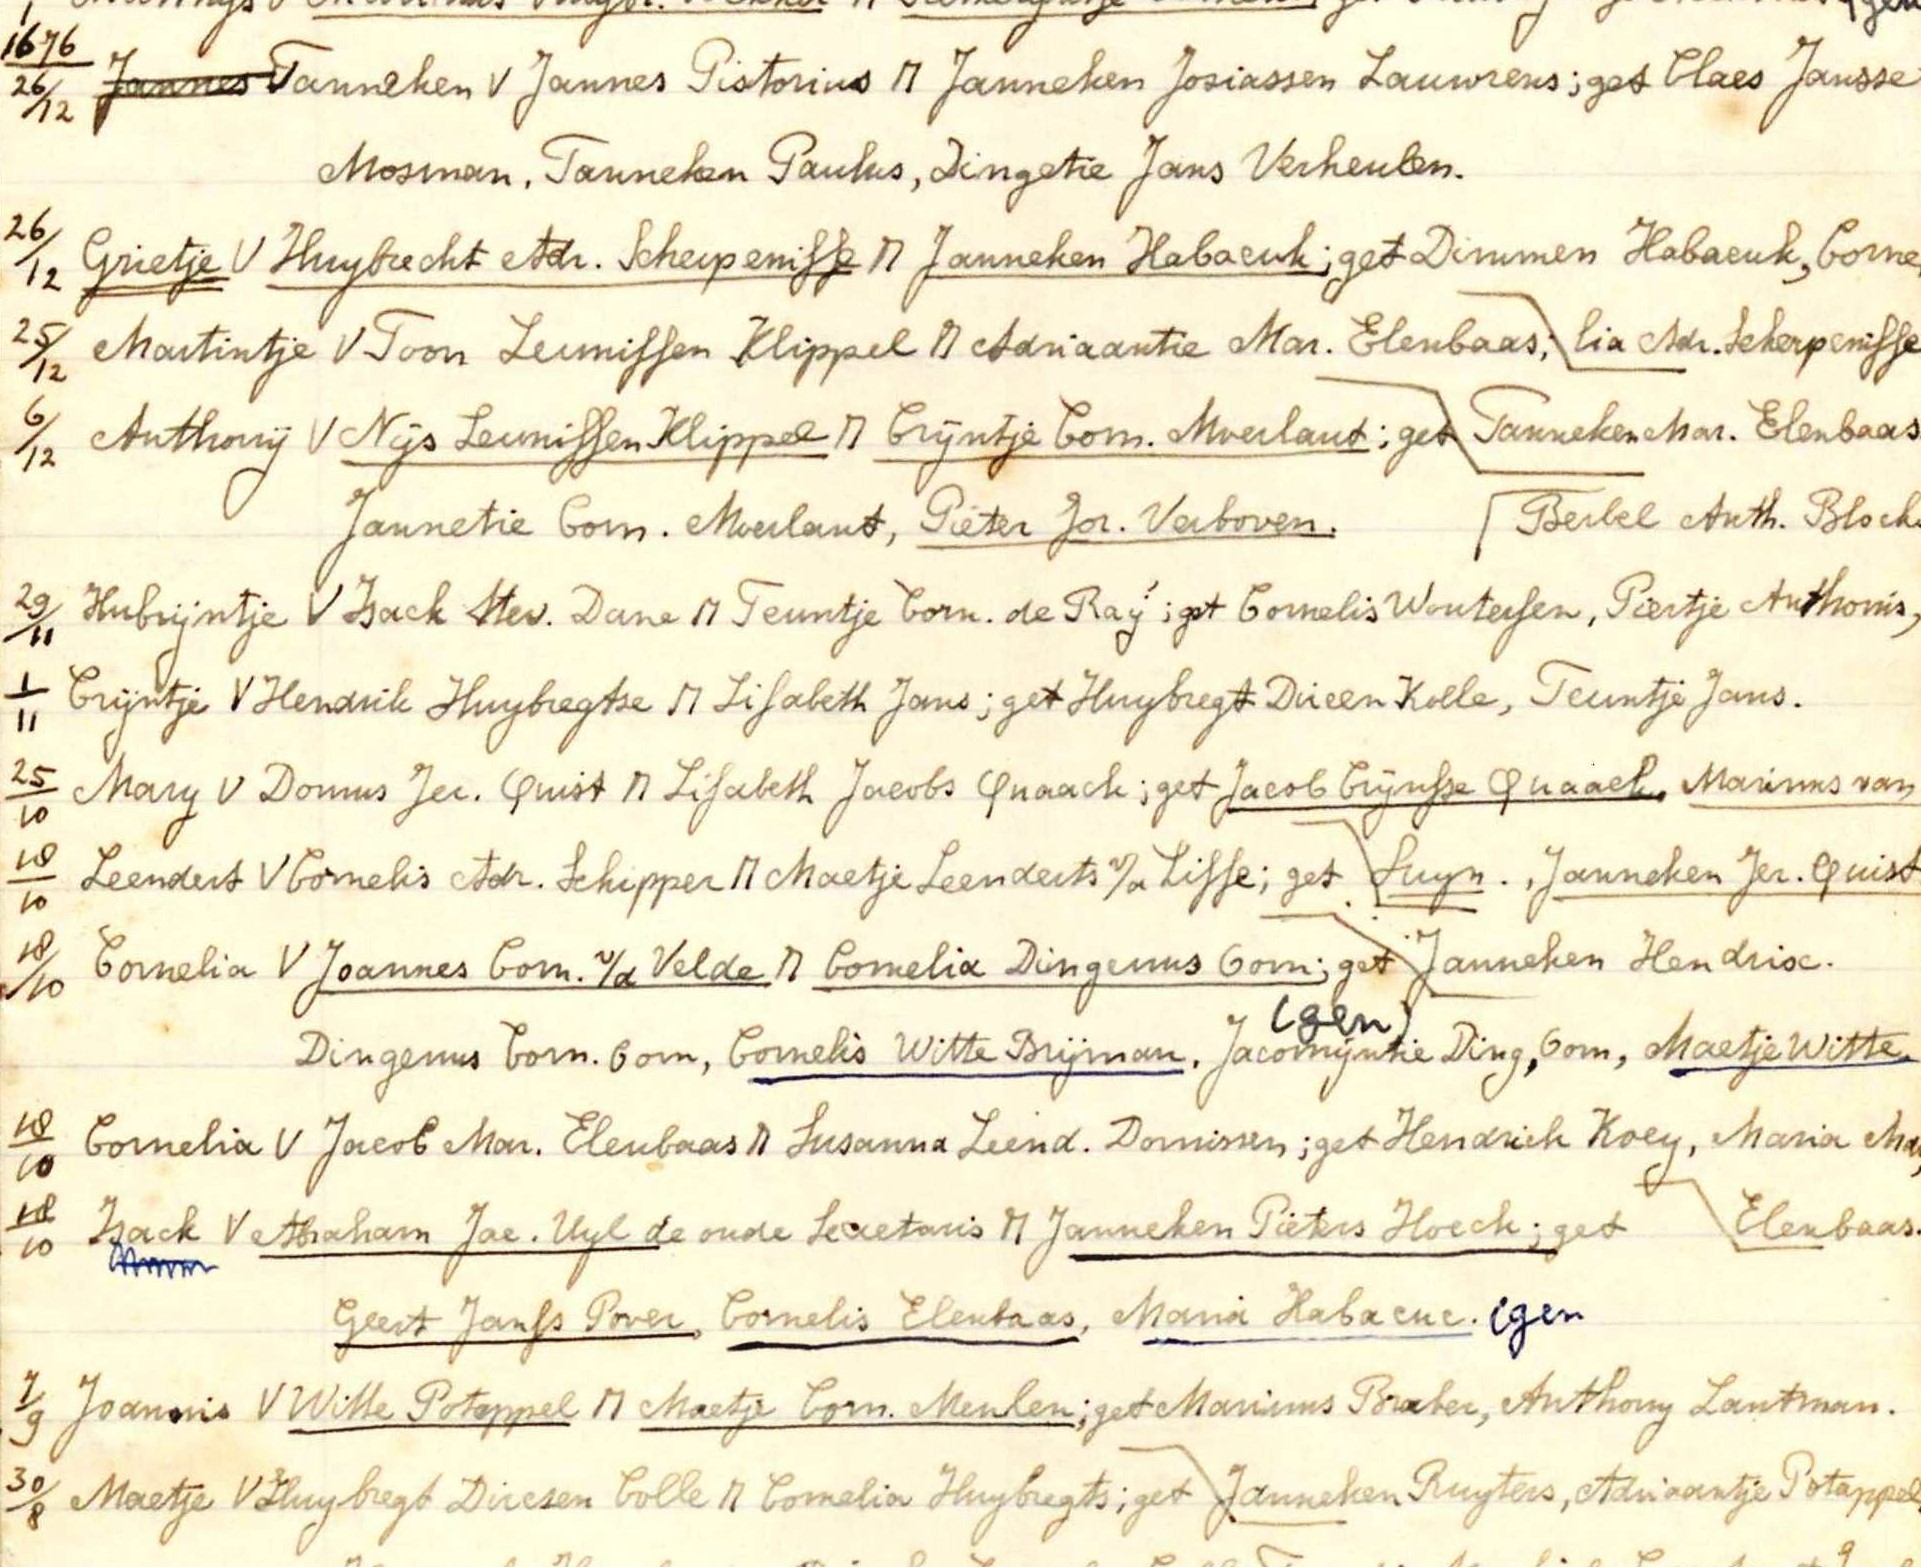 1676
26/12 Jannes Tanneken V Jannes Pistorius M Janneken Josiassen Lauwrens; get Claes Jansse
Mosman, Tanneken Paulus, Dingetie Jans Verheulen.
26/12 Grietje V Huybrecht Adr. Scherpenisse M Janneken Habacuk; get Dimmen Habacuk, Corne
25/12 Martintje V Toon Leunissen Klippel M Adriaantie Mar. Elenbaas; lia Adr. Scherpenisse
6/12 Anthonij V Nijs Leunissen Klippel M Crijntje Corn. Moerlant; get Tanneken Mar. Elenbaas
Jannetie Corn. Moerlant, Pieter Jor. Verboven. Berbel Anth. Block
29/11 Hubrijntje V Isack Stev. Dane M Teuntje Corn. de Raÿ; get Cornelis Woutersen, Piertje Anthonis,
1/11 Crijntje V Hendrik Huybregtse M Lisabeth Jans; get Huybregt Dircen Kolle, Teuntje Jans.
25/10 Mary V Domus Jer. Quist M Lisabeth Jacobs Quaack; get Jacob Crijnsse Quaack, Marinus van
18/10 Leendert V Cornelis Adr. Schipper M Maetje Leenderts v/a Lisse; get Suyn., Janneken Jer. Quist
18/10 Cornelia V Joannes Corn. v/d Velde M Cornelia Dingenus Gorn; get Janneken Hendrisc.
(gen)
Dingenus Corn. Gorn, Cornelis Witte Brijman, Jacomijntie Ding, Gorn, Maetje Witte
18/10 Cornelia V Jacob Mar. Elenbaas M Susanna Leend. Dornissen; get Hendrick Koey, Maria Mar,
18/10 Isack V Abraham Jac. Uyl de oude Secretaris M Janneken Pieters Hoeck; get Elenbaas.
Geert Janss Pover, Cornelis Elenbaas, Maria Habacuc. (gen
7/9 Joannis V Witte Potappel M Maetje Corn. Meulen; get Marinus Braber, Anthony Lantman.
30/8 Maetje V Huybregt Dircsen Colle M Cornelia Huybregts; get Janneken Ruyters, Adriaantje Potappel,